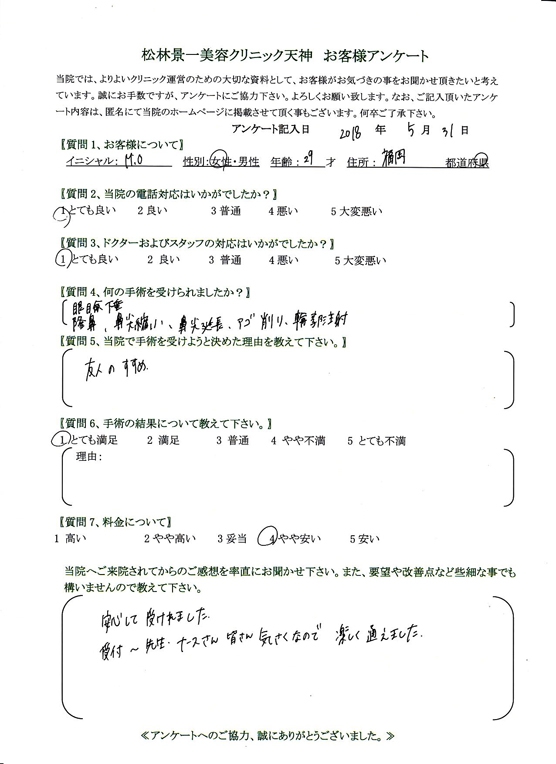 松林景一美容クリニック天神　お客様アンケート
当院では、よりよいクリニック運営のための大切な資料として、お客様がお気づきの事をお聞かせ頂きたいと考え
ています。誠にお手数ですが、アンケートにご協力下さい。よろしくお願い致します。なお、ご記入頂いたアンケ
ート内容は、匿名にて当院のホームページに掲載させて頂く事もございます。何卒ご了承下さい。
アンケート記入日　2018　年　5　月　31　日
【質問1、お客様について】
イニシャル: M.O　性別:女性・男性　年齢: 29 才　住所: 福岡　都道府県
【質問2、当院の電話対応はいかがでしたか？】
1とても良い　2 良い　3 普通　4 悪い　5 大変悪い
【質問3、ドクターおよびスタッフの対応はいかがでしたか？】
1とても良い　2 良い　3 普通　4 悪い　5 大変悪い
【質問4、何の手術を受けられましたか？】
眼瞼下垂
隆鼻、鼻尖縮小、鼻尖延長、アゴ削り、輪郭注射
【質問5、当院で手術を受けようと決めた理由を教えて下さい。】
友人のすすめ.
【質問6、手術の結果について教えて下さい。】
1とても満足　2 満足　3 普通　4 やや不満　5 とても不満
理由:
【質問7、料金について】
1 高い　2 やや高い　3 妥当　4 やや安い　5 安い
当院へご来院されてからのご感想を率直にお聞かせ下さい。また、要望や改善点など些細な事でも
構いませんので教えて下さい。
安心して受けれました.
受付～先生・ナースさん皆さん気さくなので楽しく通えました.
≪アンケートへのご協力、誠にありがとうございました。≫